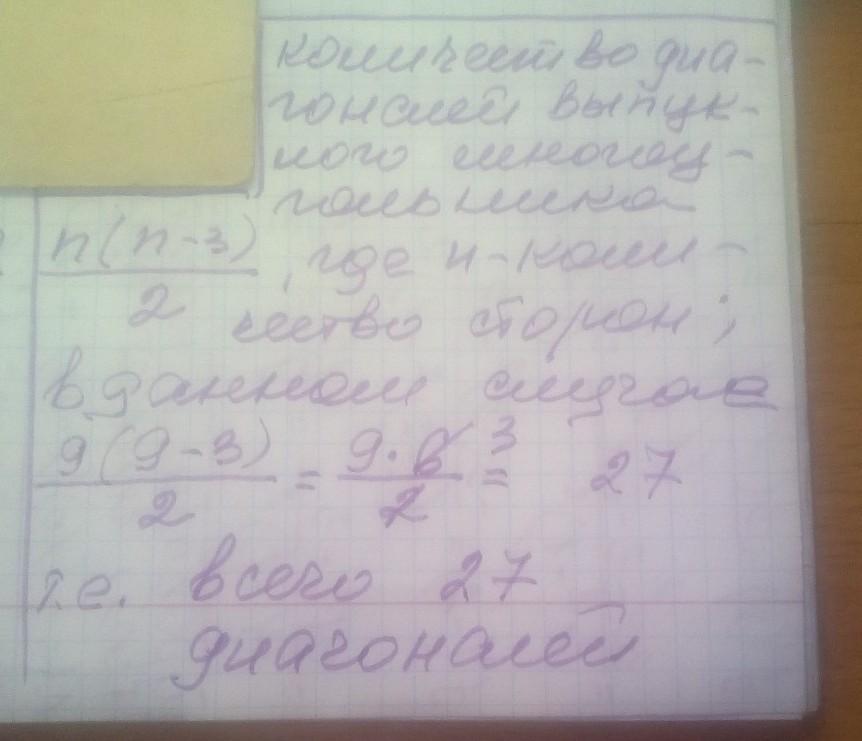 количество диа-
гоналей выпук-
лого многоу-
гольника
n(n-3)/2, где n-коли-
чество сторон;
в данном случае
9(9-3)/2 = 9·6/2 3 = 27
т.е. всего 27
диагоналей